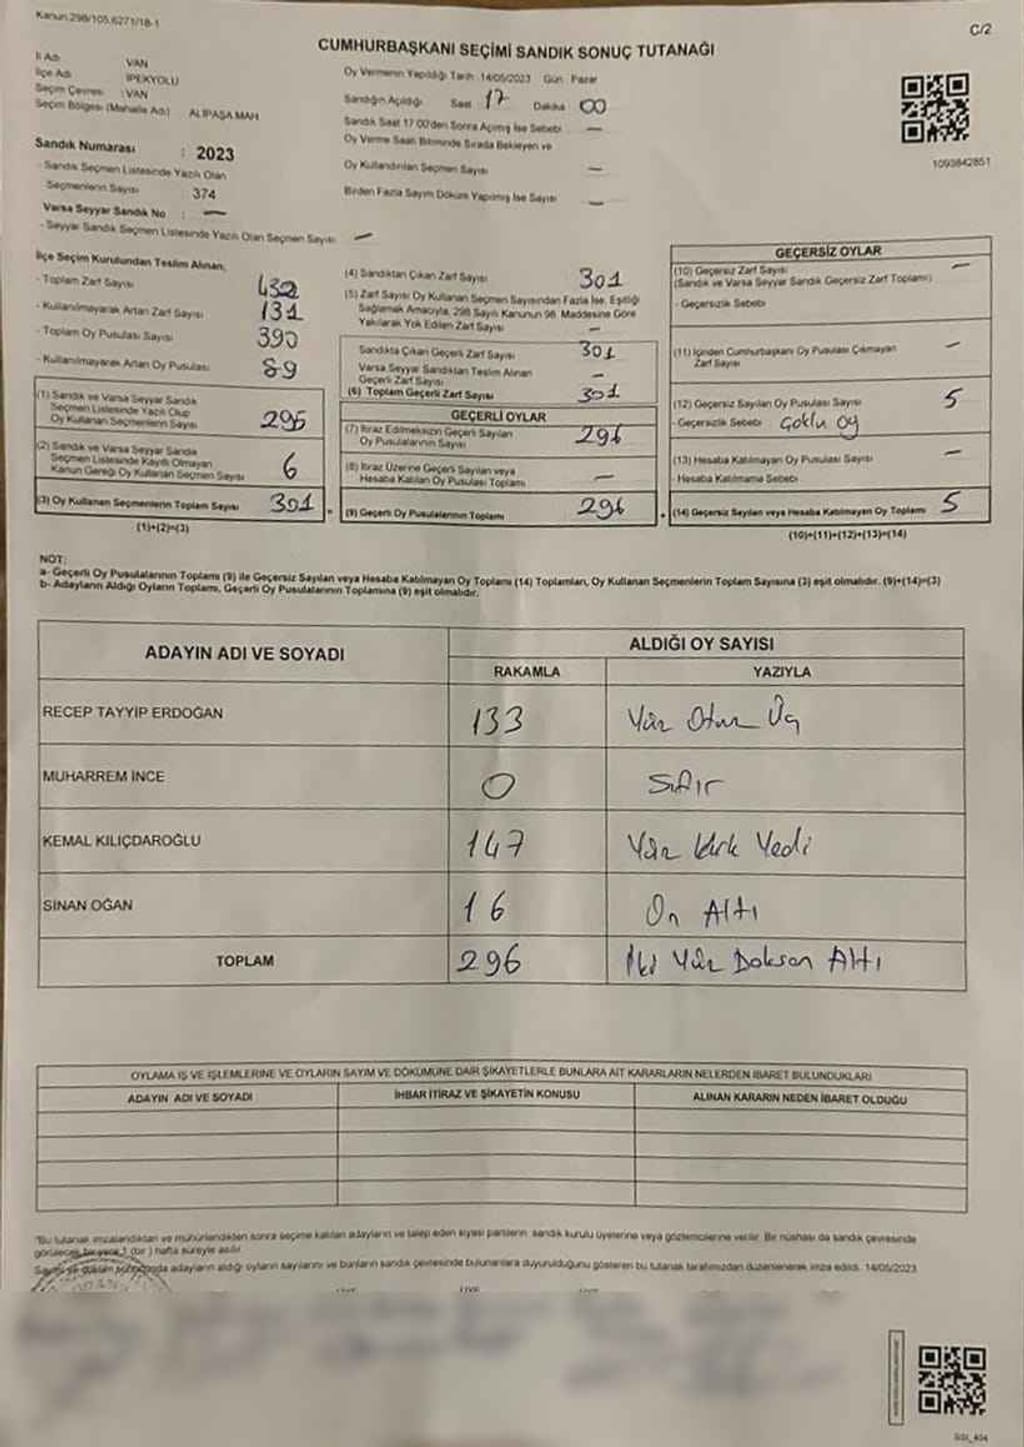 Kanun.298/105.6271/18-1
C/2
CUMHURBAŞKANI SEÇİMİ SANDIK SONUÇ TUTANAĞI
İl Adı : VAN
İlçe Adı : İPEKYOLU
Seçim Çevresi : VAN
Seçim Bölgesi (Mahalle Adı) ALİPAŞA MAH
Sandık Numarası : 2023
- Sandık Seçmen Listesinde Yazılı Olan
Seçmenlerin Sayısı 374
Varsa Seyyar Sandık No : —
- Seyyar Sandık Seçmen Listesinde Yazılı Olan Seçmen Sayısı —
Oy Vermenin Yapıldığı Tarih 14/05/2023 Gün Pazar
Sandığın Açıldığı Saat 17 Dakika 00
Sandık Saat 17:00'den Sonra Açılmış İse Sebebi —
Oy Verme Saati Bitiminde Sırada Bekleyen ve
Oy Kullandırılan Seçmen Sayısı —
Birden Fazla Sayım Döküm Yapılmış İse Sayısı —
1093842851
İlçe Seçim Kurulundan Teslim Alınan;
- Toplam Zarf Sayısı 432
- Kullanılmayarak Artan Zarf Sayısı 131
- Toplam Oy Pusulası Sayısı 390
- Kullanılmayarak Artan Oy Pusulası 89
(1) Sandık ve Varsa Seyyar Sandık
Seçmen Listesinde Yazılı Olup
Oy Kullanan Seçmenlerin Sayısı 295
(2) Sandık ve Varsa Seyyar Sandık
Seçmen Listesinde Kayıtlı Olmayan
Kanun Gereği Oy Kullanan Seçmen Sayısı 6
(3) Oy Kullanan Seçmenlerin Toplam Sayısı 301
(1)+(2)=(3)
(4) Sandıktan Çıkan Zarf Sayısı 301
(5) Zarf Sayısı Oy Kullanan Seçmen Sayısından Fazla İse, Eşitliği
Sağlamak Amacıyla, 298 Sayılı Kanunun 98. Maddesine Göre
Yakılarak Yok Edilen Zarf Sayısı —
Sandıkta Çıkan Geçerli Zarf Sayısı 301
Varsa Seyyar Sandıktan Teslim Alınan
Geçerli Zarf Sayısı —
(6) Toplam Geçerli Zarf Sayısı 301
GEÇERLİ OYLAR
(7) İtiraz Edilmeksizin Geçerli Sayılan
Oy Pusulalarının Sayısı 296
(8) İtiraz Üzerine Geçerli Sayılan veya
Hesaba Katılan Oy Pusulası Toplamı —
(9) Geçerli Oy Pusulalarının Toplamı 296
GEÇERSİZ OYLAR
(10) Geçersiz Zarf Sayısı —
(Sandık ve Varsa Seyyar Sandık Geçersiz Zarf Toplamı)
- Geçersizlik Sebebi
(11) İçinden Cumhurbaşkanı Oy Pusulası Çıkmayan —
Zarf Sayısı
(12) Geçersiz Sayılan Oy Pusulası Sayısı 5
- Geçersizlik Sebebi Çoklu oy
(13) Hesaba Katılmayan Oy Pusulası Sayısı —
- Hesaba Katılmama Sebebi
(14) Geçersiz Sayılan veya Hesaba Katılmayan Oy Toplamı 5
(10)+(11)+(12)+(13)=(14)
NOT:
a- Geçerli Oy Pusulalarının Toplamı (9) ile Geçersiz Sayılan veya Hesaba Katılmayan Oy Toplamı (14) Toplamları, Oy Kullanan Seçmenlerin Toplam Sayısına (3) eşit olmalıdır. (9)+(14)=(3)
b- Adayların Aldığı Oyların Toplamı, Geçerli Oy Pusulalarının Toplamına (9) eşit olmalıdır.
ADAYIN ADI VE SOYADI ALDIĞI OY SAYISI
RAKAMLA YAZIYLA
RECEP TAYYİP ERDOĞAN 133 Yüz Otuz Üç
MUHARREM İNCE 0 Sıfır
KEMAL KILIÇDAROĞLU 147 Yüz Kırk Yedi
SİNAN OĞAN 16 On Altı
TOPLAM 296 İki Yüz Doksan Altı
OYLAMA İŞ VE İŞLEMLERİNE VE OYLARIN SAYIM VE DÖKÜMÜNE DAİR ŞİKAYETLERLE BUNLARA AİT KARARLARIN NELERDEN İBARET BULUNDUKLARI
ADAYIN ADI VE SOYADI İHBAR İTİRAZ VE ŞİKAYETİN KONUSU ALINAN KARARIN NEDEN İBARET OLDUĞU
"Bu tutanak imzalandıktan ve mühürlendikten sonra seçime katılan adayların ve talep eden siyasi partilerin sandık kurulu üyelerine veya gözlemcilerine verilir. Bir nüshası da sandık çevresinde
görülecek bir yere 1 (bir) hafta süreyle asılır.
adayların aldığı oyların sayılarını ve bunların sandık çevresinde bulunanlara duyurulduğunu gösteren bu tutanak tarafımızdan düzenlenerek imza edildi. 14/05/2023